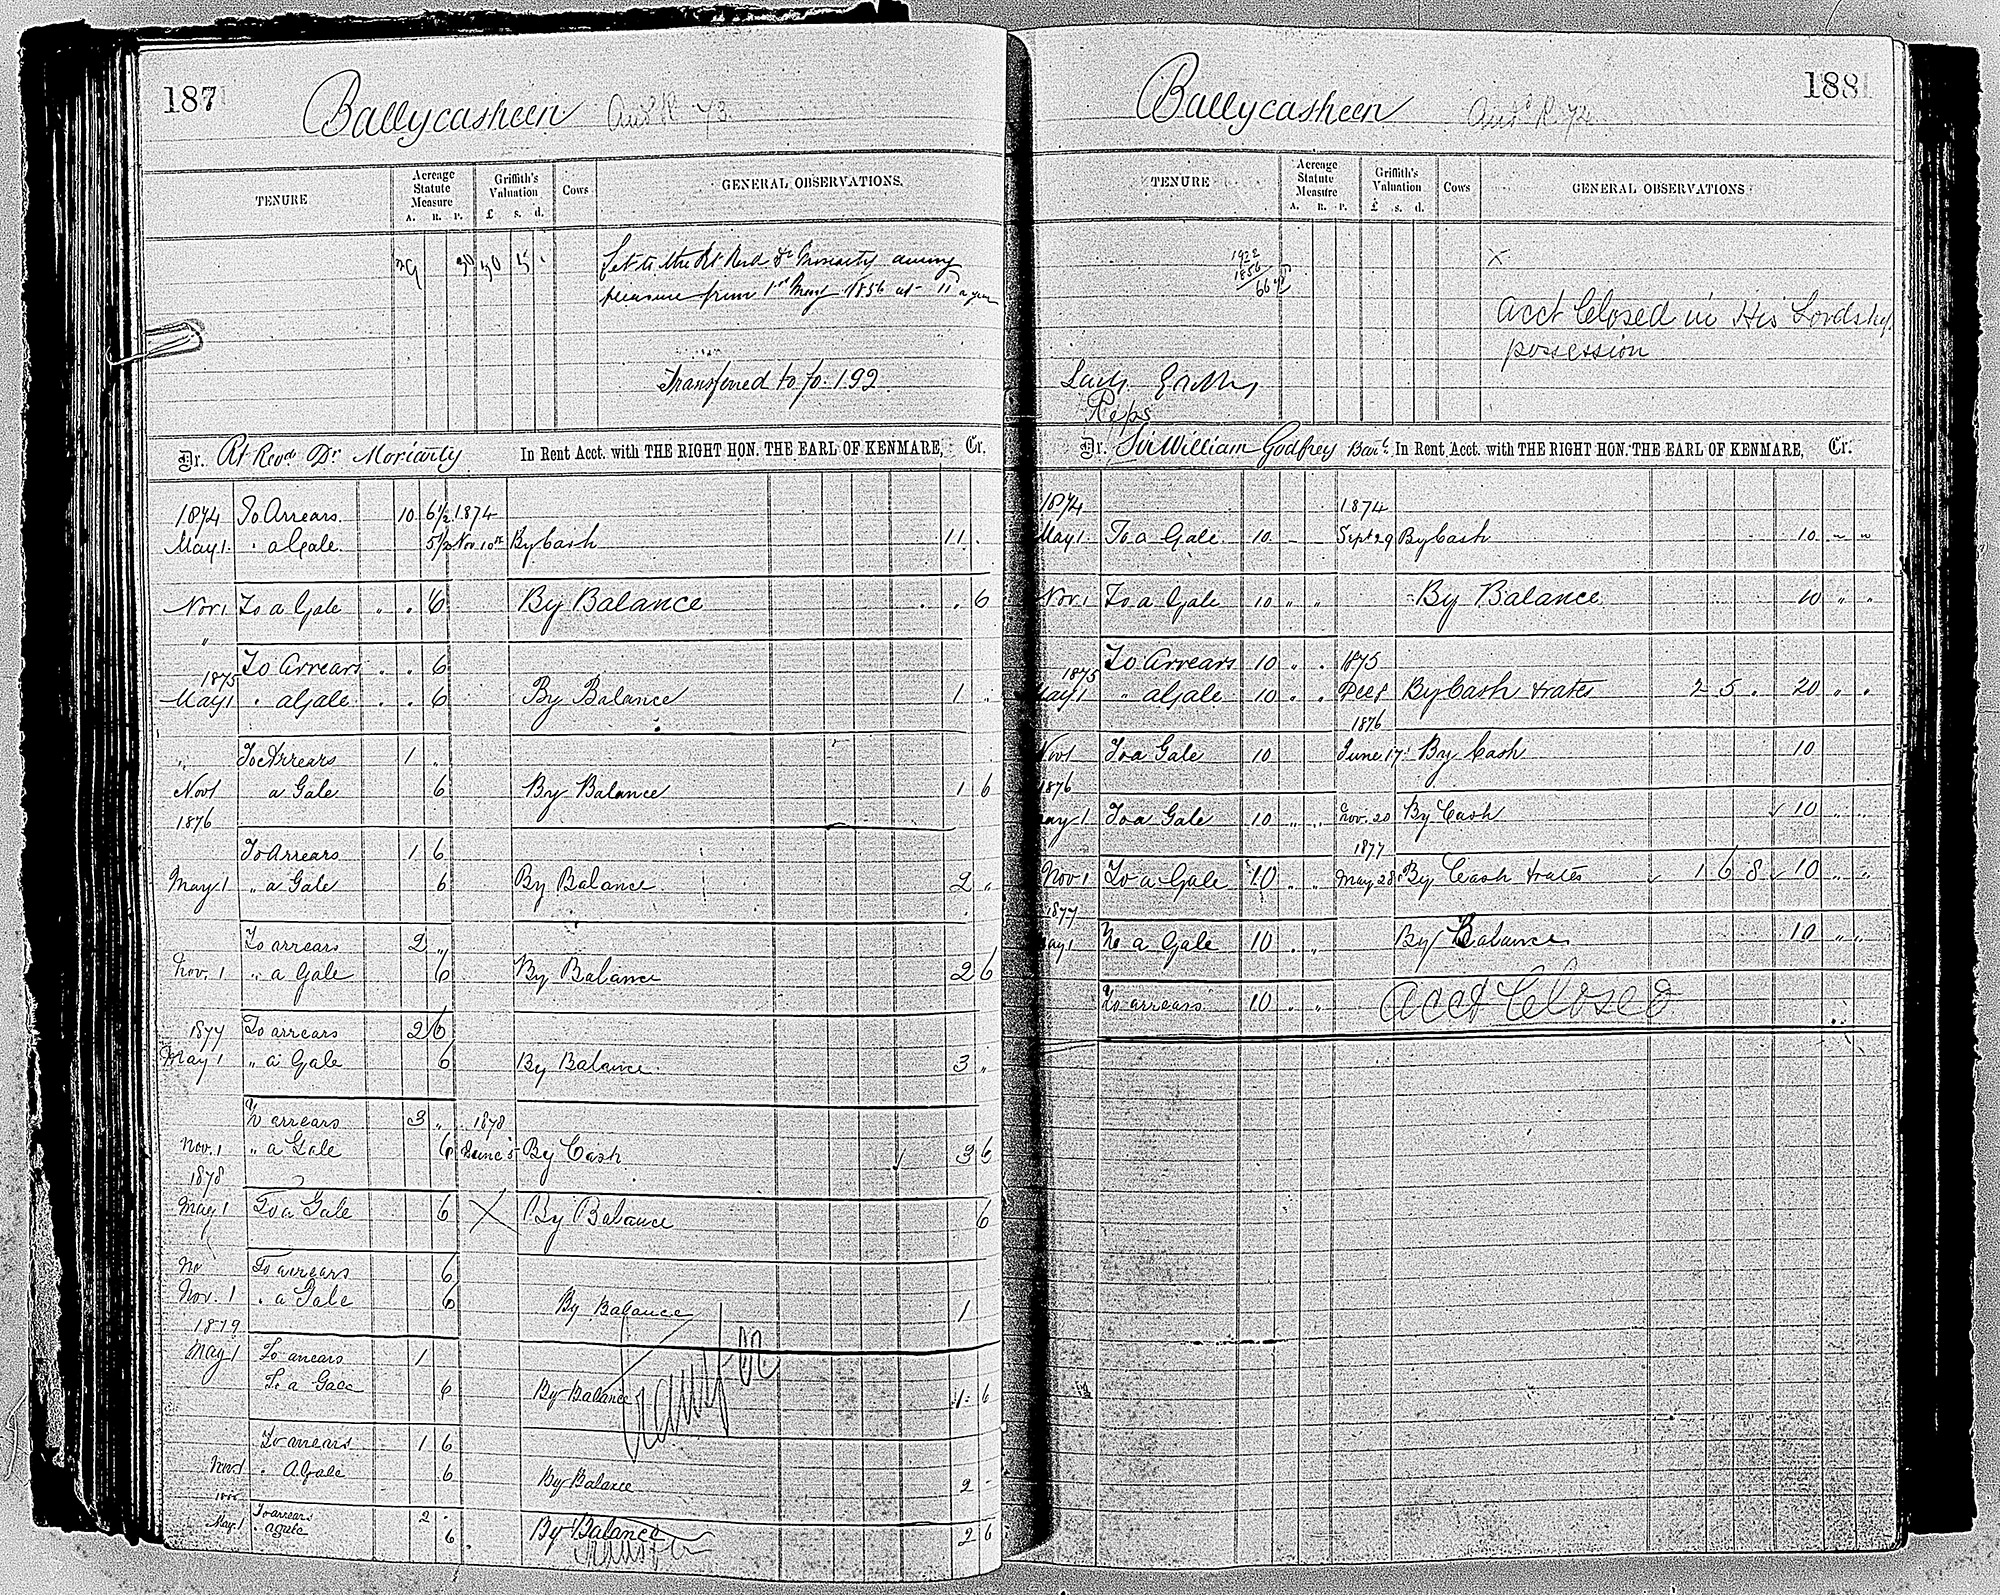 187
Ballycasheen
TENURE
Acreage Statute Measure
A. R. P.
Griffith's Valuation
£ s. d.
Cows
GENERAL OBSERVATIONS.
29 30 15
Let to the Rt Revd Dr Moriarty during
pleasure from 1st May 1856 at 1/- a year
Transferred to fo. 192
Dr. Rt Revd Dr Moriarty In Rent Acct. with THE RIGHT HON. THE EARL OF KENMARE, Cr.
1874 To Arrears. 10 6½ 1874
May 1. " a Gale. 5½ Nov 10th By Cash 11 .
Nov 1 To a Gale " . 6 By Balance . . 6
"
To Arrears . . 6
1875
May 1 . a Gale . . 6 By Balance 1 .
" To Arrears 1 "
Nov 1 a Gale 6 By Balance 1 6
1876
To Arrears 1 6
May 1 " a Gale 6 By Balance 2 "
To arrears 2 "
Nov. 1 " a Gale 6 By Balance 2 6
1877 To arrears 2 6
May 1 " a Gale 6 By Balance 3 "
To arrears 3 " 1878
Nov. 1 " a Gale 6 June 5 By Cash 3 6
1878
May 1 To a Gale 6 By Balance 6
No To arrears 6
Nov. 1 . a Gale 6 By Balance 1
1879
May 1 To arrears 1
To a Gale 6 By Balance 1 6
Transfer
To arrears 1 6
Nov 1 . a Gale 6 By Balance 2 -
To arrears 2 -
May 1 . a gale 6 By Balance 2 6
Transfer
188
Ballycasheen
TENURE
Acreage Statute Measure
A. R. P.
Griffith's Valuation
£ s. d.
Cows
GENERAL OBSERVATIONS
1922
1856
66
x
acct Closed in His Lordship
possession
Lady Godfrey
Reps
Dr. Sir William Godfrey Bart. In Rent Acct. with THE RIGHT HON. THE EARL OF KENMARE, Cr.
1874 1874
May 1 To a Gale 10 - Sept 29 By Cash 10 " "
Nov 1 To a Gale 10 " " By Balance 10 " "
To Arrears 10 " . 1875
1875
May 1 " a Gale 10 " . By Cash & rates 2 5 . 20 " .
1876
Nov 1 To a Gale 10 June 17 By Cash 10
1876
May 1 To a Gale 10 " " Nov. 20 By Cash ✓ 10 " "
1877
Nov 1 To a Gale 10 " " May 28 By Cash & rates ✓ 1 6 8 ✓ 10 " "
1877
May 1 To a Gale 10 " " By Balance 10 " "
To arrears 10 " " Acct Closed